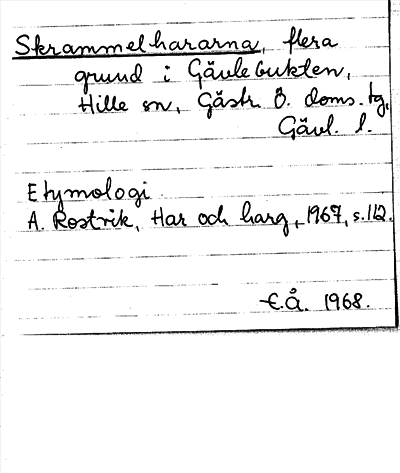 Skrammelhararna, flera
grund i Gävlebukten,
Hille sn, Gästr. Ö. doms. tg,
Gävl. l.
Etymologi
A. Rostvik, Har och harg, 1967, s. 112.
E.Å. 1968.